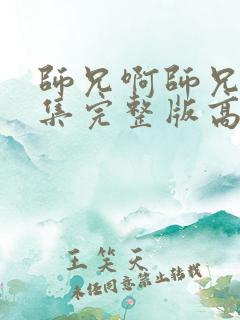 師兄啊師兄
集完整版高
王笑天
未經同意禁止轉載